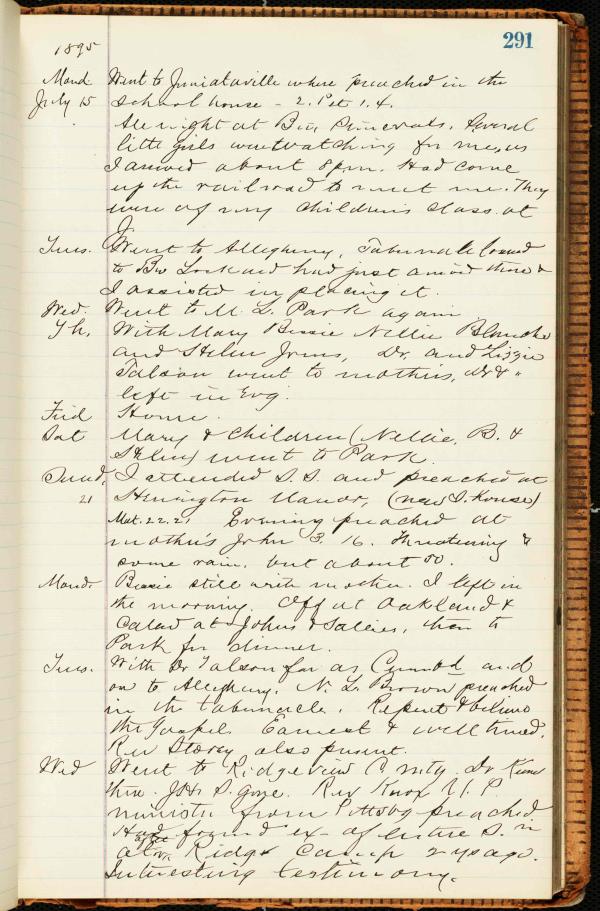 291
1895
Mond Went to Juniataville where preached in the
July 15 School house - 2. Pet. 1.4.
All night at Bro. Several
little girls were watching for me, as
I arrived about 8 pm. Had come
up the railroad to meet me. They
were of my children's class at
J.
Tues. Went to Allegheny, Tabernacle loaned
to Bro Lockard had just arrived there &
I assisted in placing it.
Wed. Went to M. L. Park again
Th. With Mary Bessie Nellie Blanche
and Helen Dr. and Lizzie
went to mothers, Dr & "
left in Evg.
Frid Home.
Sat Mary & children (Nellie, B. &
Helen) went to Park.
Sund, I attended S. S. and preached at
21 Manor, (new S. House)
Mat. 22.21 Evening preached at
mother's John 3 16. Threatening &
some rain, but about 50.
Mond. Bessie still with mother. I left in
the morning. Off at Oakland &
Called at Johns & Sallies, then to
Park for dinner.
Tues. With Dr as far as Cumbd and
on to Allegheny. N. L. Brown preached
in the tabernacle. Repent & believe
the Gospel. Earnest & well timed.
Rev Storey also present.
Wed Went to Ridgeview C. mtg. Dr
there. S. gone. Rev Knox U. P.
minister from Pittsbg preached
Had found ex- of entire S. in
after at Ridge Camp 2 ys ago.
Interesting testimony.